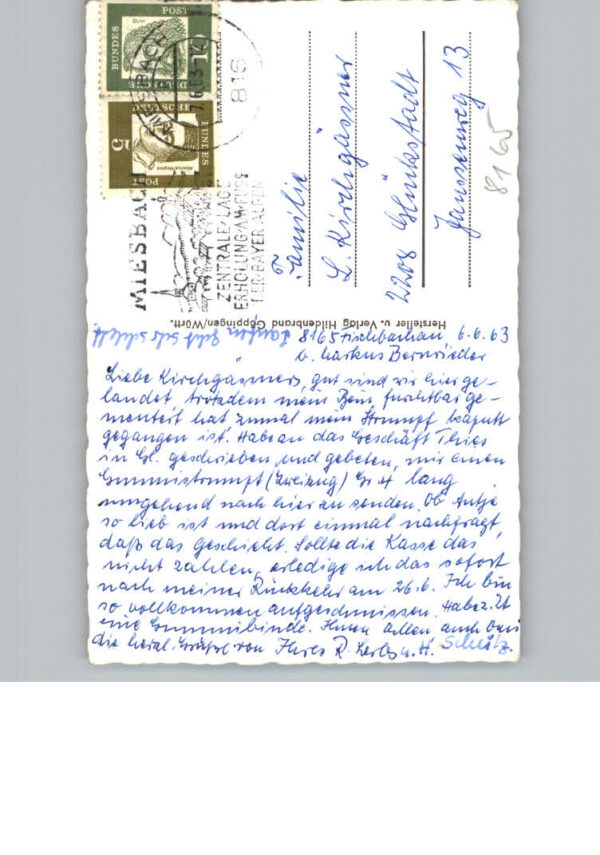 BUNDES
POST
DEUTSCHE
BUNDES
POST
5
MIESBACH
816
MIESBACH
ZENTRALE LAGE
ERHOLUNG AM FUSS
DER BAYER. ALPEN
Familie
L. Kirchgässner
2208 Glückstadt
Janssenweg 13
8165
Hersteller u. Verlag Hildenbrand Göppingen/Württ.
Laufen geht sehr schlecht.
8165 Fischbachau 6.6.63
b. Markus Bernrieder
Liebe Kirchgässners, gut sind wir hier ge-
landet trotzdem mein Bein furchtbar ge-
mentert hat zumal mein Strumpf kaputt
gegangen ist. Habe an das Geschäft Thies
in Gl. geschrieben und gebeten, mir einen
Gummistrumpf (Zweizug) Gr 4 lang
umgehend nach hier zu senden. Ob Antje
so lieb ist und dort einmal nachfragt,
daß das geschieht. Sollte die Kasse das
nicht zahlen, erledige ich das sofort
nach meiner Rückkehr am 26.6. Ich bin
so vollkommen aufgeschmissen. Habe z.Zt
eine Gummibinde. Ihnen allen auch Omi
die herzl. Grüße von Ihres R. u. H. Schütz.